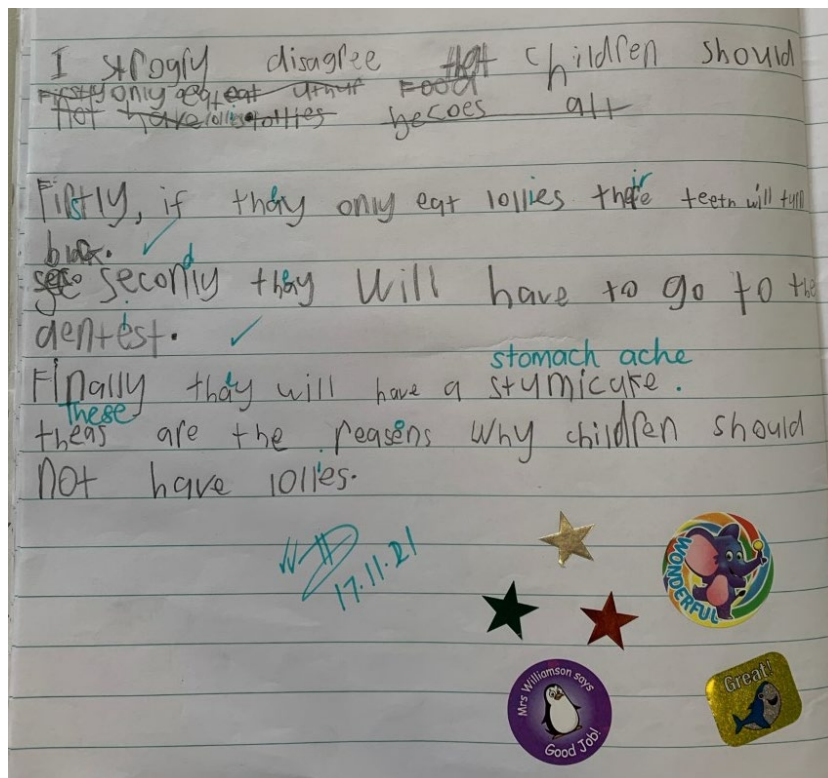 I strogly disagree that children should
Firstly only eat eat Food
not have lollies becoes all
Firstly, if they only eat lollies their teeth will turn
black.
secondly they will have to go to the
dentist.
stomach ache
Finally they will have a stumicake.
These
theas are the reasons why children should
not have lollies.
17.11.21
WONDERFUL
Mrs Williamson says
Good Job!
Great!